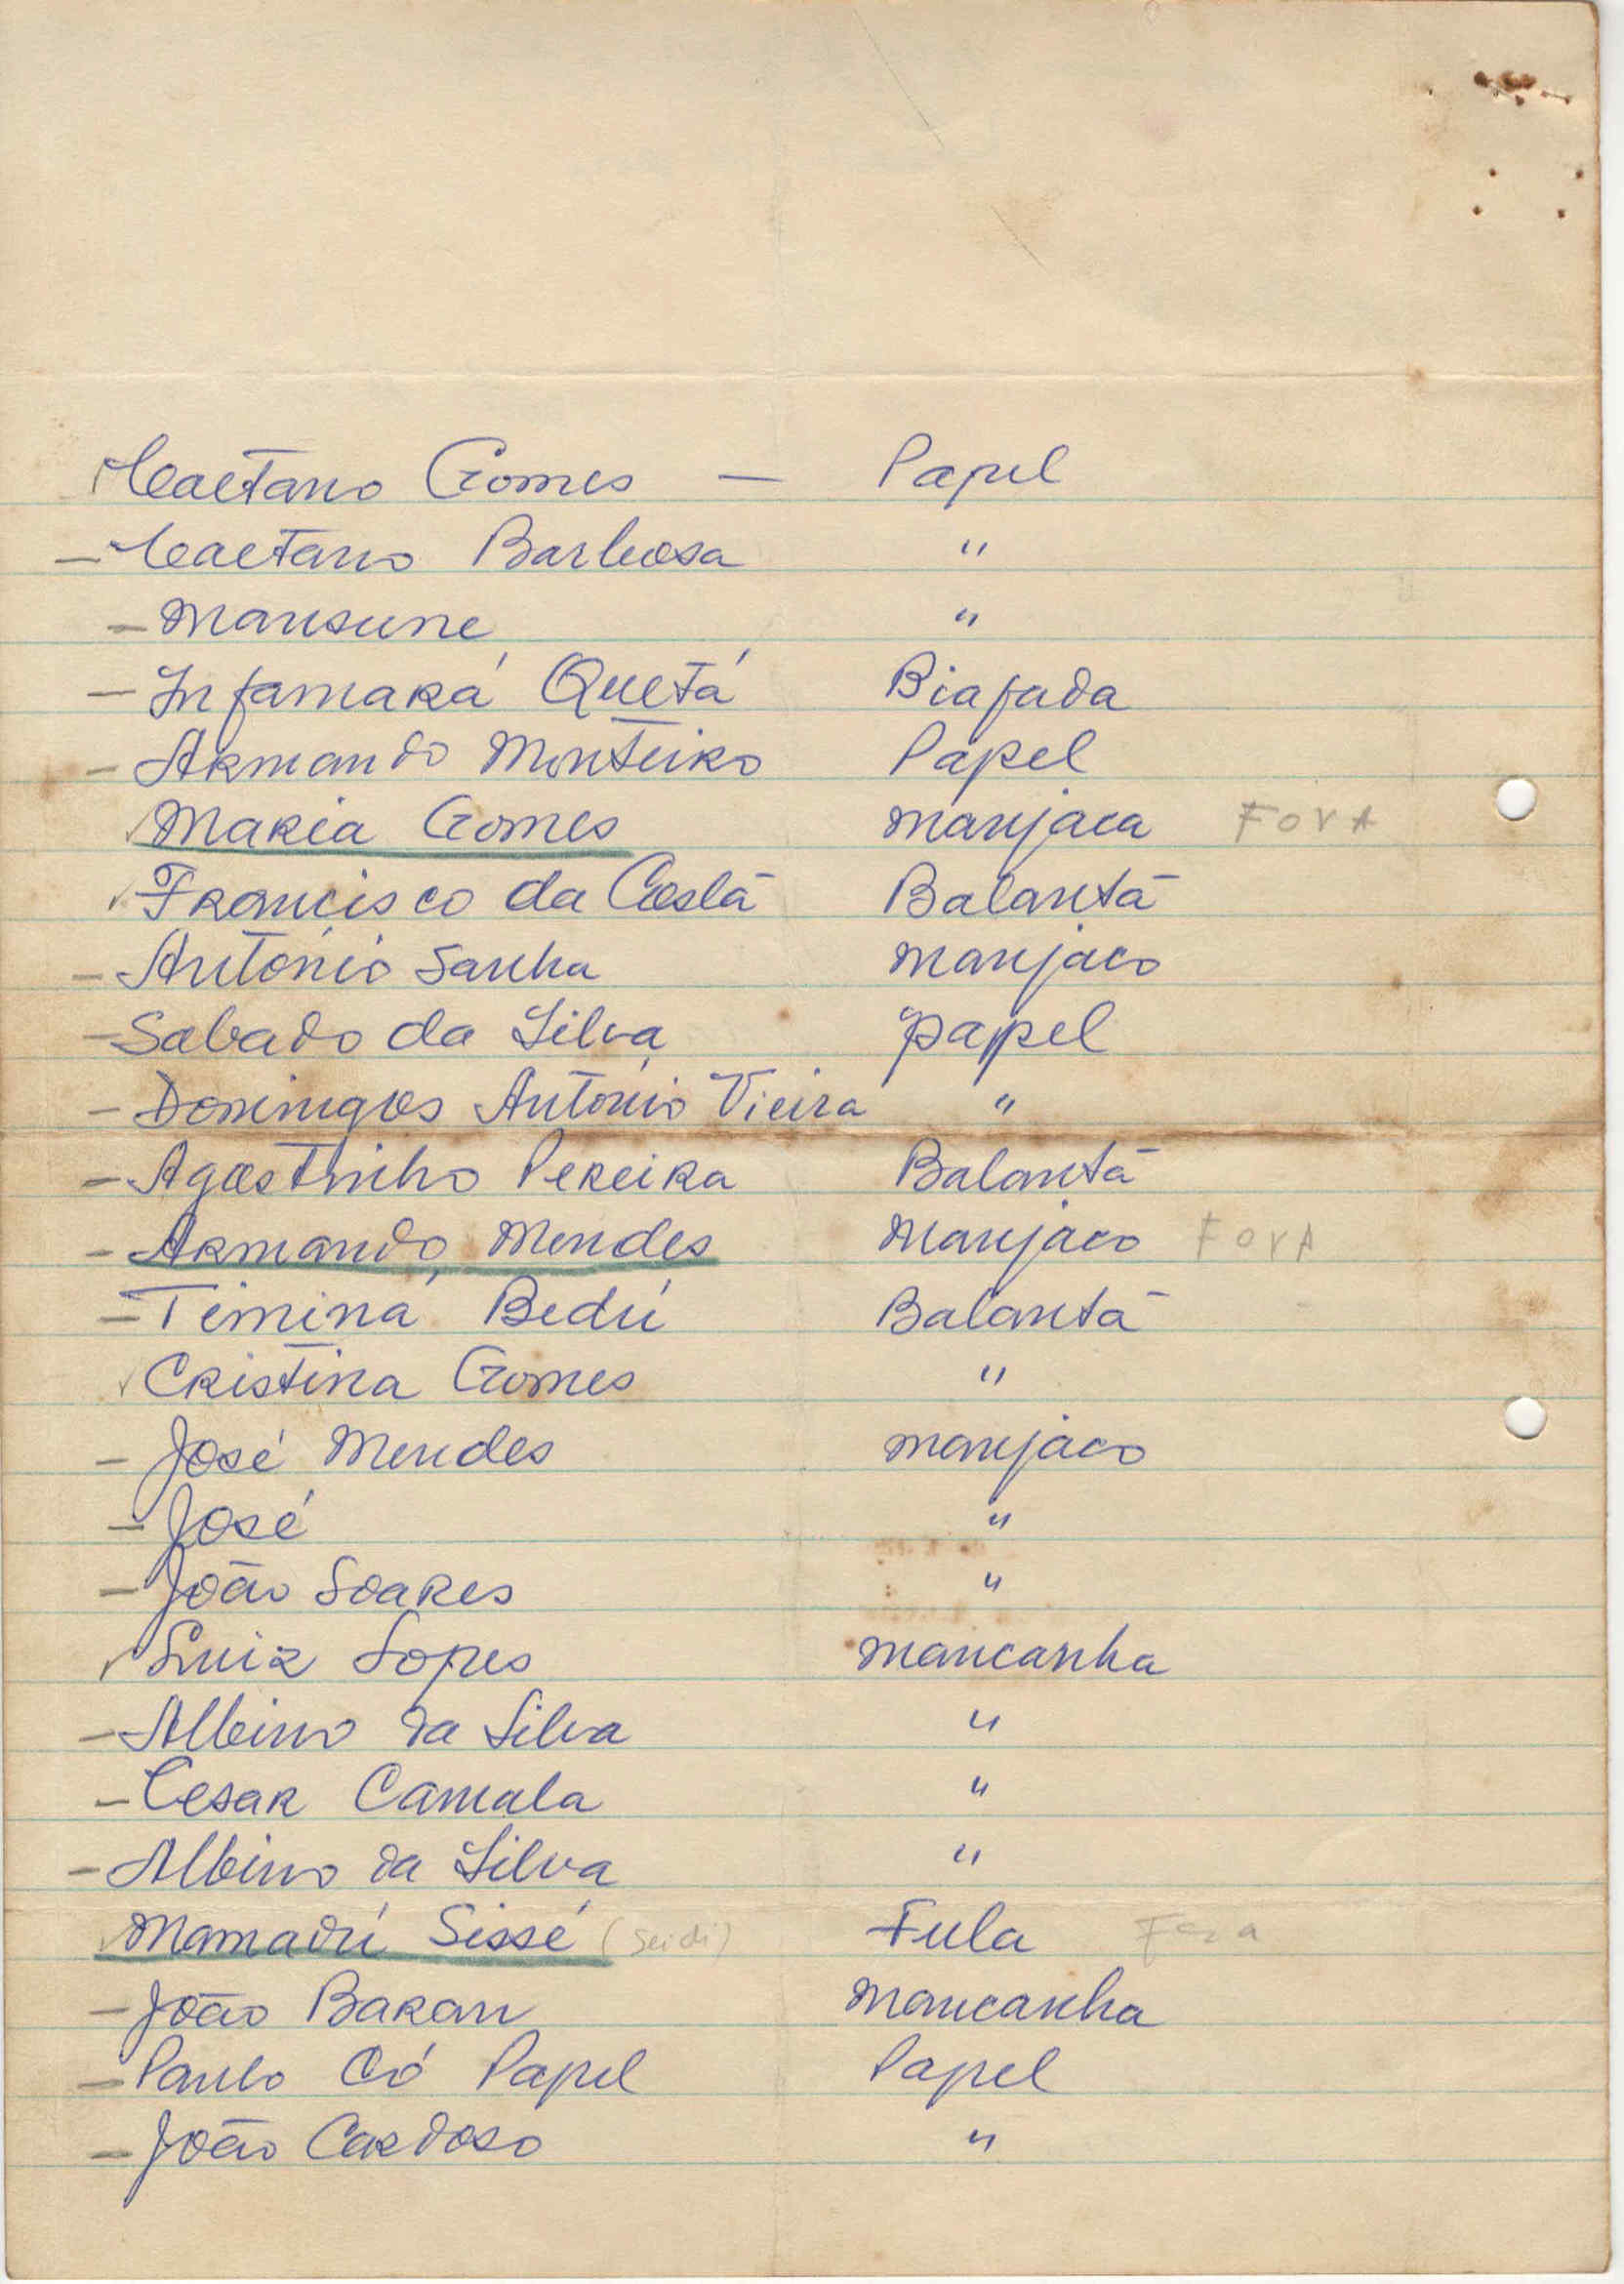 Caetano Gomes — Papel
- Caetano Barbosa "
- Mansune "
- Infamará Quetá Biafada
- Armando Monteiro Papel
Maria Gomes manjaca FORA
Francisco da Costa Balanta
- António Sanha manjaco
- Sabado da Silva papel
- Domingos António Vieira "
- Agostinho Pereira Balanta
- Armando Mendes Manjaco FORA
- Timiná Bedú Balanta
Cristina Gomes "
- José Mendes manjaco
- José "
- João Soares "
Luiz Lopes mancanha
- Albino da Silva "
- Cesar Camala "
- Albino da Silva "
Mamadú Sissé (Seidi) Fula Fora
- João Baran mancanha
- Paulo Có Papel Papel
- João Cardoso "